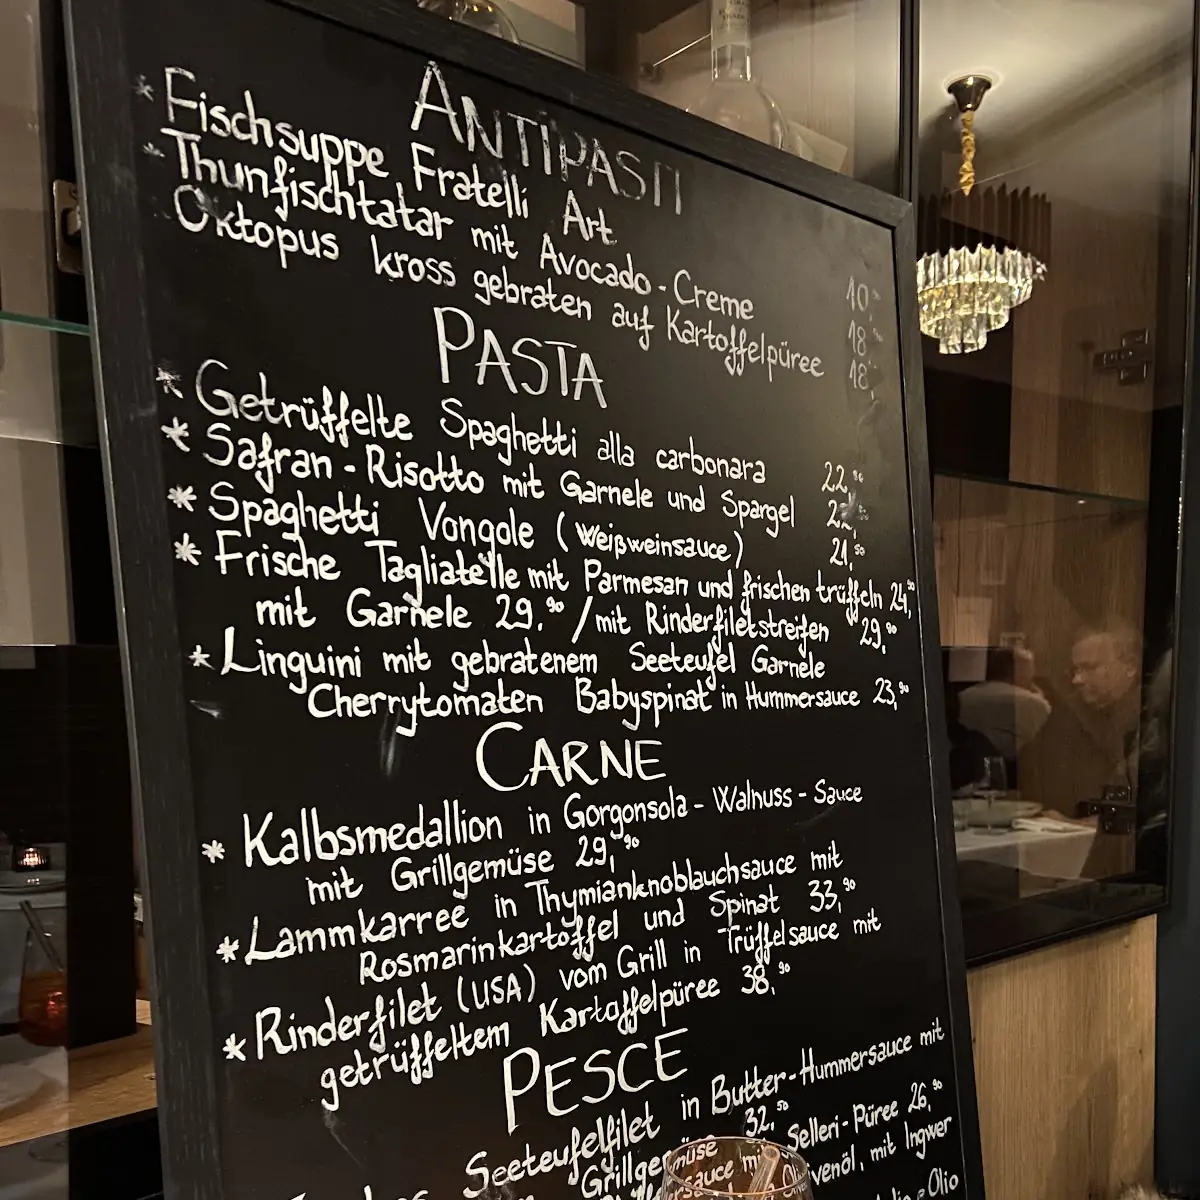 ANTIPASTI
* Fischsuppe Fratelli Art 10,
* Thunfischtatar mit Avocado-Creme 18,
Oktopus kross gebraten auf Kartoffelpüree 18,
PASTA
* Getrüffelte Spaghetti alla carbonara 22,90
* Safran-Risotto mit Garnele und Spargel
* Spaghetti Vongole (Weißweinsauce) 21,50
* Frische Tagliatelle mit Parmesan und frischen trüffeln 24,90
mit Garnele 29,90 / mit Rinderfiletstreifen 29,90
* Linguini mit gebratenem Seeteufel Garnele
Cherrytomaten Babyspinat in Hummersauce 23,90
CARNE
* Kalbsmedallion in Gorgonsola-Walnuss-Sauce
mit Grillgemüse 29,90
* Lammkarree in Thymianknoblauchsauce mit
Rosmarinkartoffel und Spinat 33,90
* Rinderfilet (USA) vom Grill in Trüffelsauce mit
getrüffeltem Kartoffelpüree 38,90
PESCE
Seeteufelfilet in Butter-Hummersauce mit
32,50
Selleri-Püree 26,90
mit Ingwer
Olio